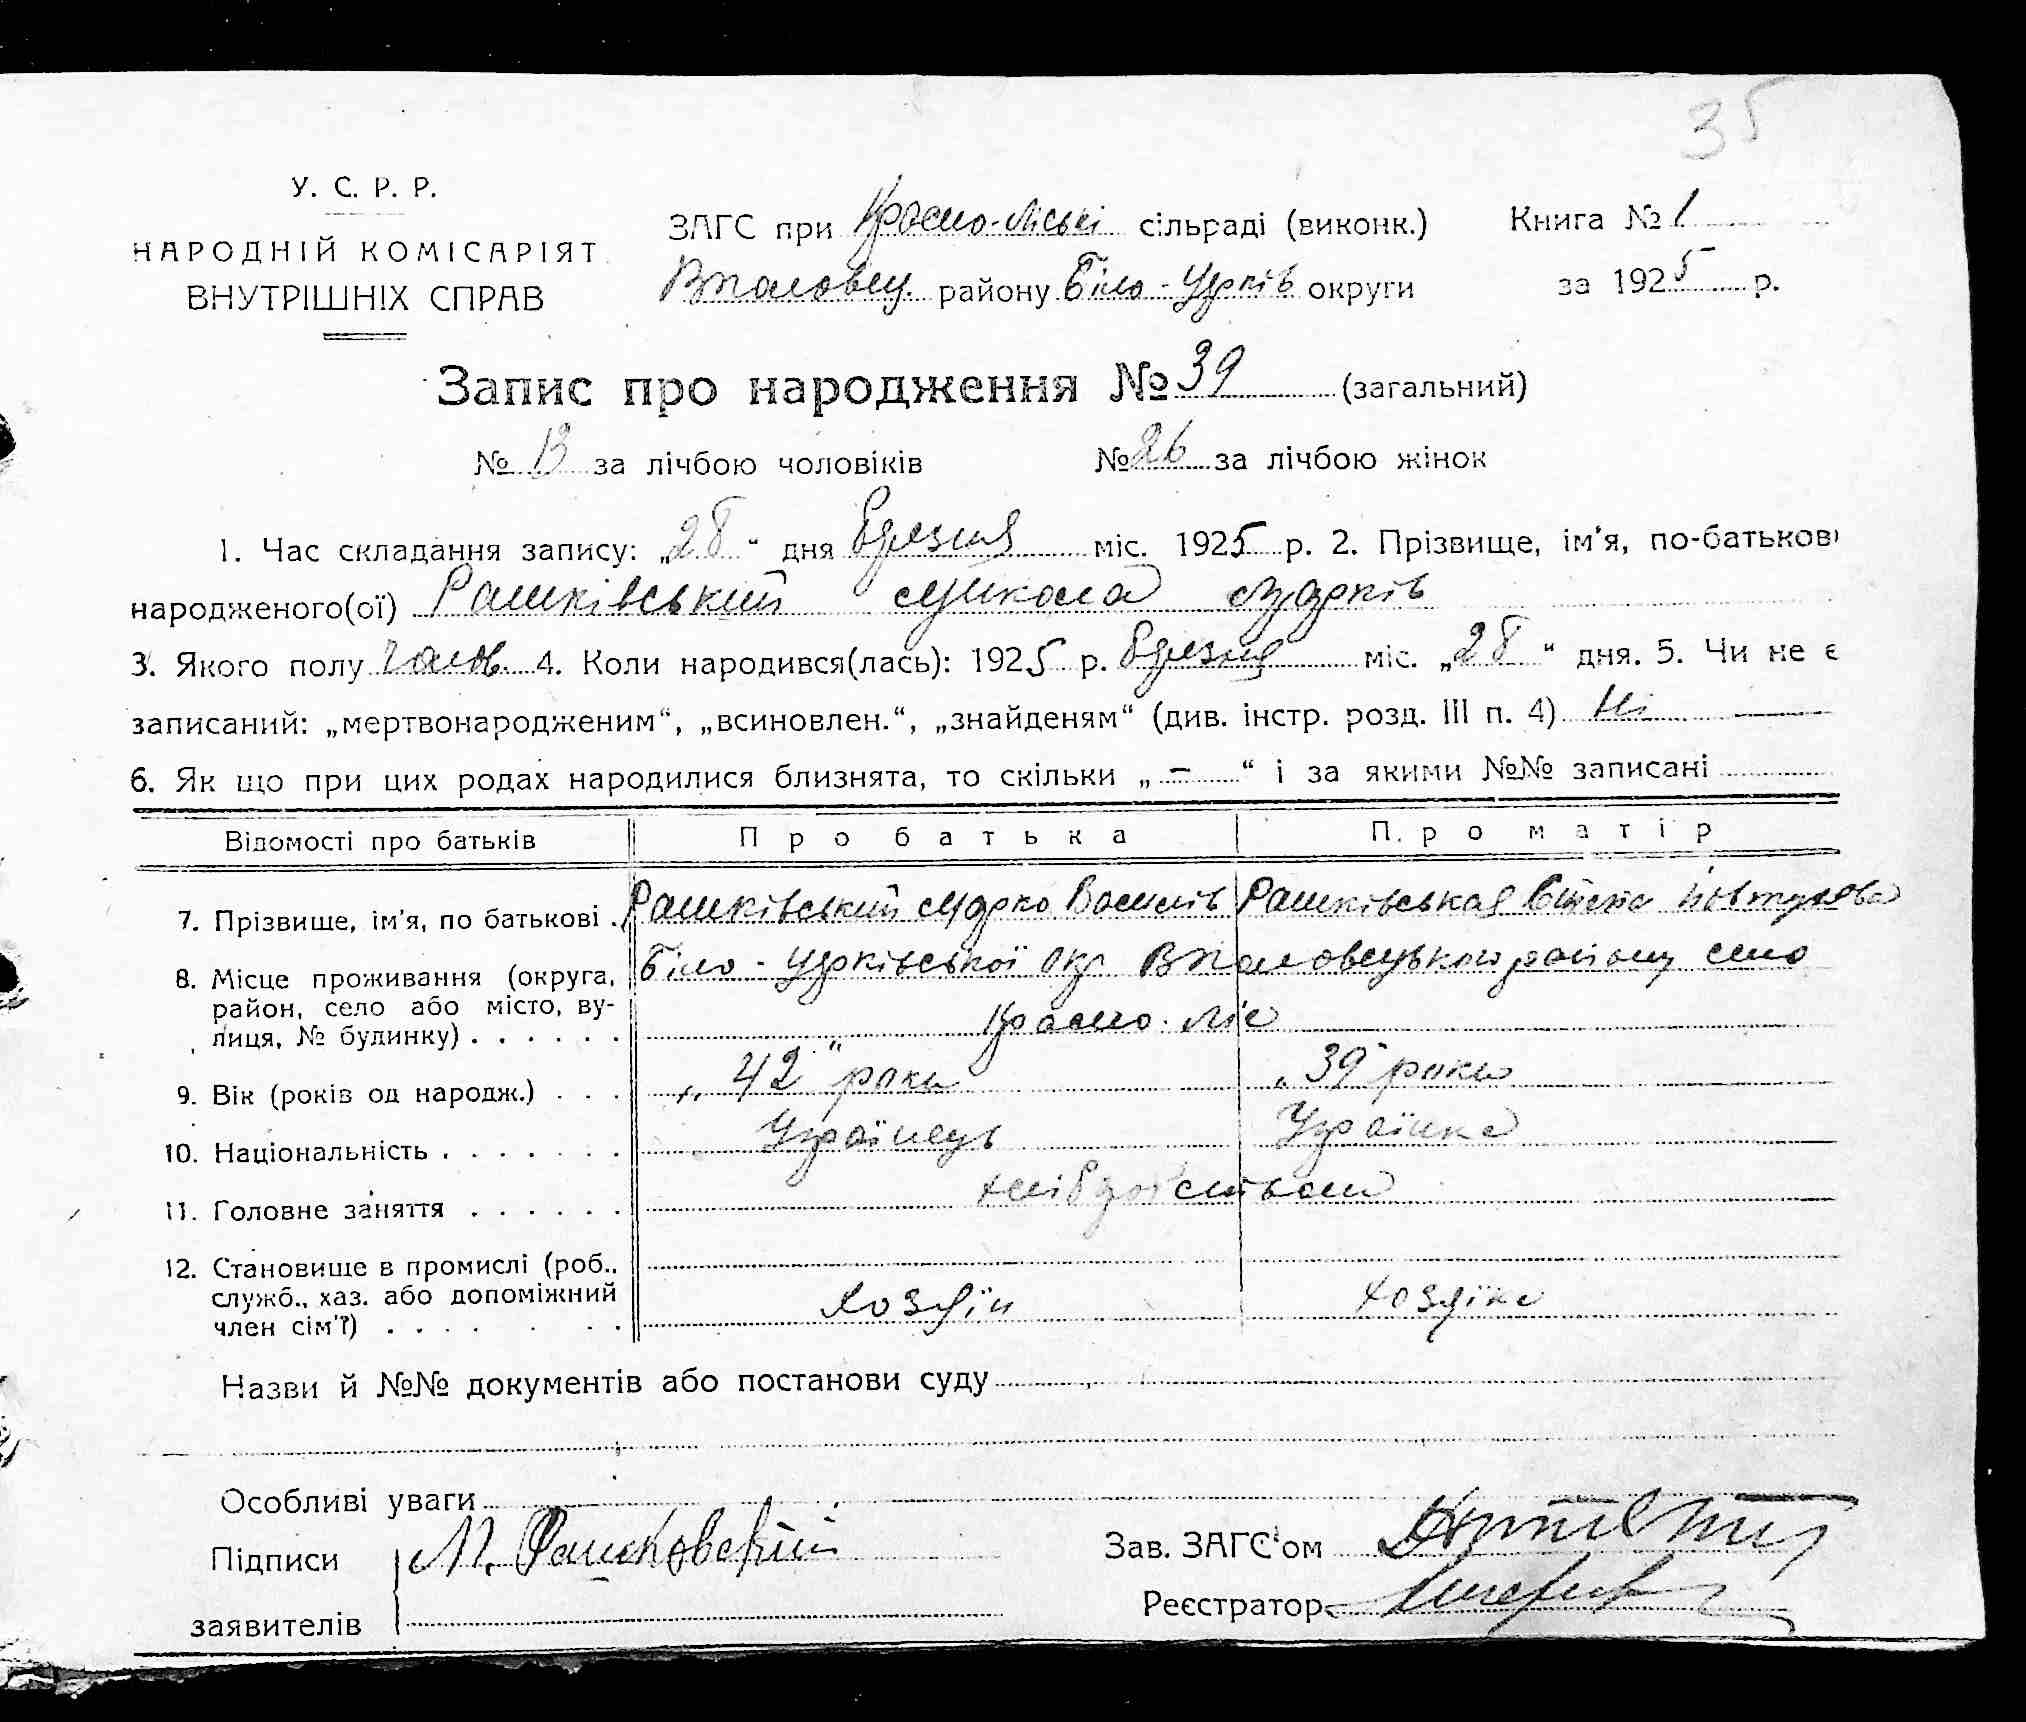 35
У. С. Р. Р.
НАРОДНІЙ КОМІСАРІЯТ
ВНУТРІШНІХ СПРАВ
ЗАГС при Красно-ліські сільраді (виконк.) Книга № 1
району Біло-Церків округи за 1925 р.
Запис про народження № 39 (загальний)
№ 13 за лічбою чоловіків № 26 за лічбою жінок
1. Час складання запису: „28“ дня березня міс. 1925 р. 2. Прізвище, ім'я, по-батькові
народженого(ої) Рашківський Микола Марків
3. Якого полу чолов. 4. Коли народився(лась): 1925 р. березня міс. „28“ дня. 5. Чи не є
записаний: „мертвонародженим“, „всиновлен.“, „знайденям“ (див. інстр. розд. III п. 4) Ні
6. Як що при цих родах народилися близнята, то скільки „ — “ і за якими №№ записані
Відомості про батьків Про батька Про матір
7. Прізвище, ім'я, по батькові . Рашківський Марко Василів Рашківська
8. Місце проживання (округа, Біло-Церківської окр. району село
район, село або місто, ву-
лиця, № будинку) . . . . . . Красно-ліс
9. Вік (років од народж.) . . . „42“ роки „39“ роки
10. Національність . . . . . . . Українець Українка
11. Головне заняття . . . . . . хліборобством
12. Становище в промислі (роб.,
служб., хаз. або допоміжний
член сім'ї) . . . . . . . хозяїн хозяїка
Назви й №№ документів або постанови суду
Особливі уваги
Підписи М. Рашковский Зав. ЗАГС'ом
заявителів Реєстратор